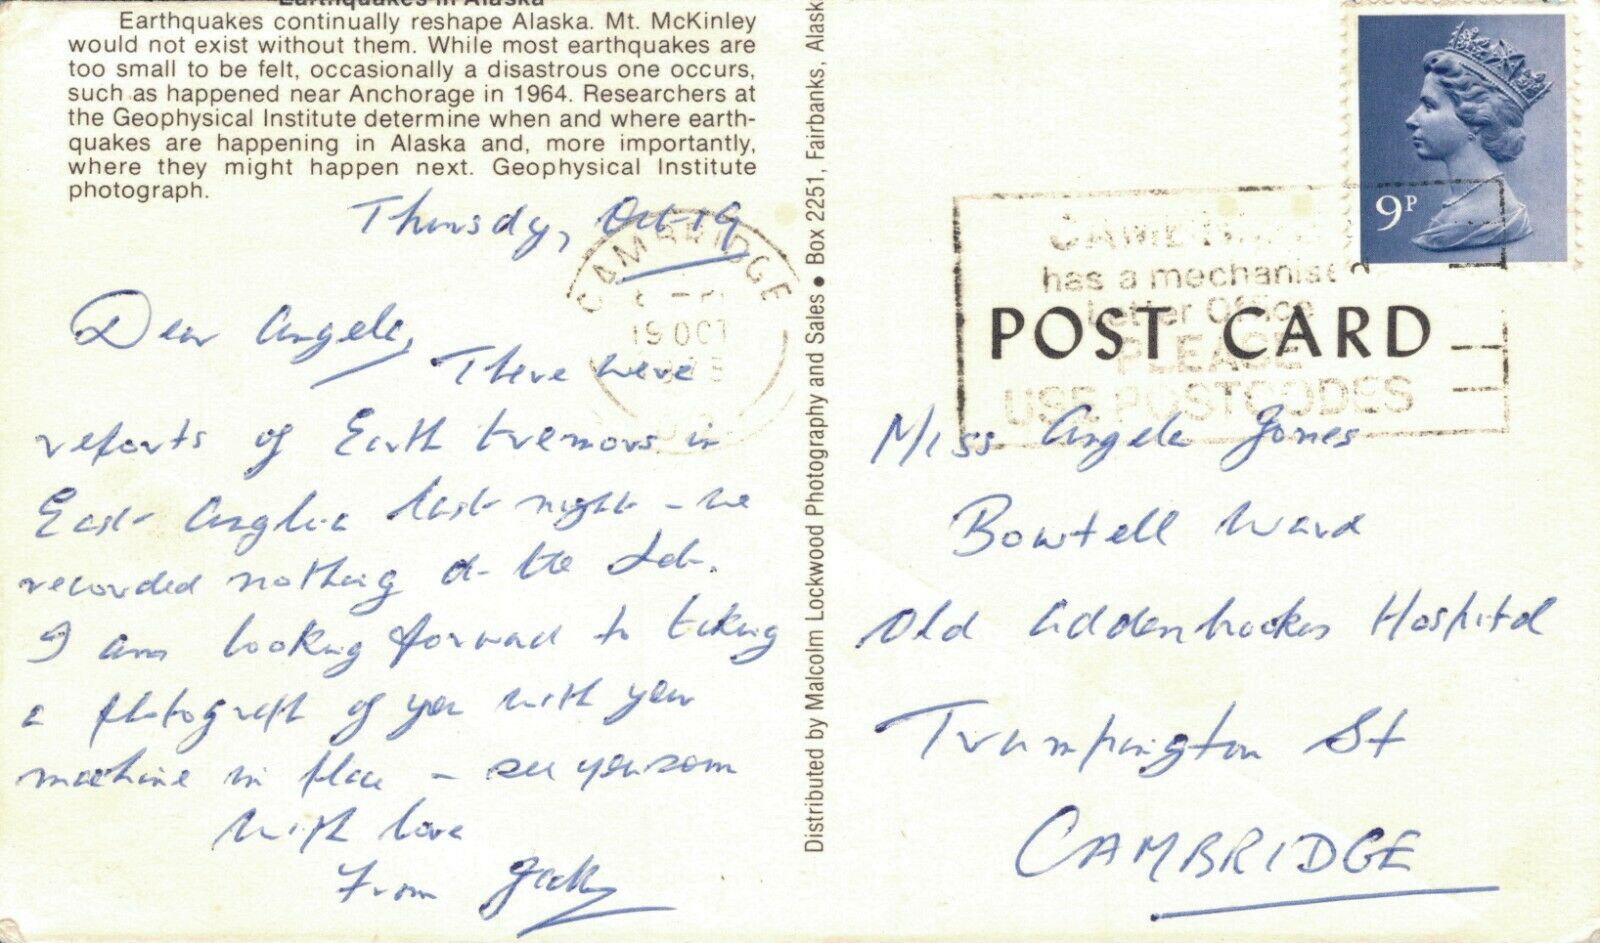 Earthquakes in Alaska
Earthquakes continually reshape Alaska. Mt. McKinley
would not exist without them. While most earthquakes are
too small to be felt, occasionally a disastrous one occurs,
such as happened near Anchorage in 1964. Researchers at
the Geophysical Institute determine when and where earth-
quakes are happening in Alaska and, more importantly,
where they might happen next. Geophysical Institute
photograph.
Thursdy, Oct 19
Dear Angela,
There were
reports of Earth tremors in
East Anglia last night - we
recorded nothing at the Lab.
I am looking forward to taking
a photograph of you with your
machine in place - see you soon
with love
From
CAMBRIDGE
19 OCT
Distributed by Malcolm Lockwood Photography and Sales • Box 2251, Fairbanks, Alask
9P
CAMBRIDGE
has a mechanised
Letter Office
PLEASE
USE POSTCODES
POST CARD
Miss Angela Jones
Bowtell Ward
Old Addenbrookes Hospital
Trumpington St
CAMBRIDGE